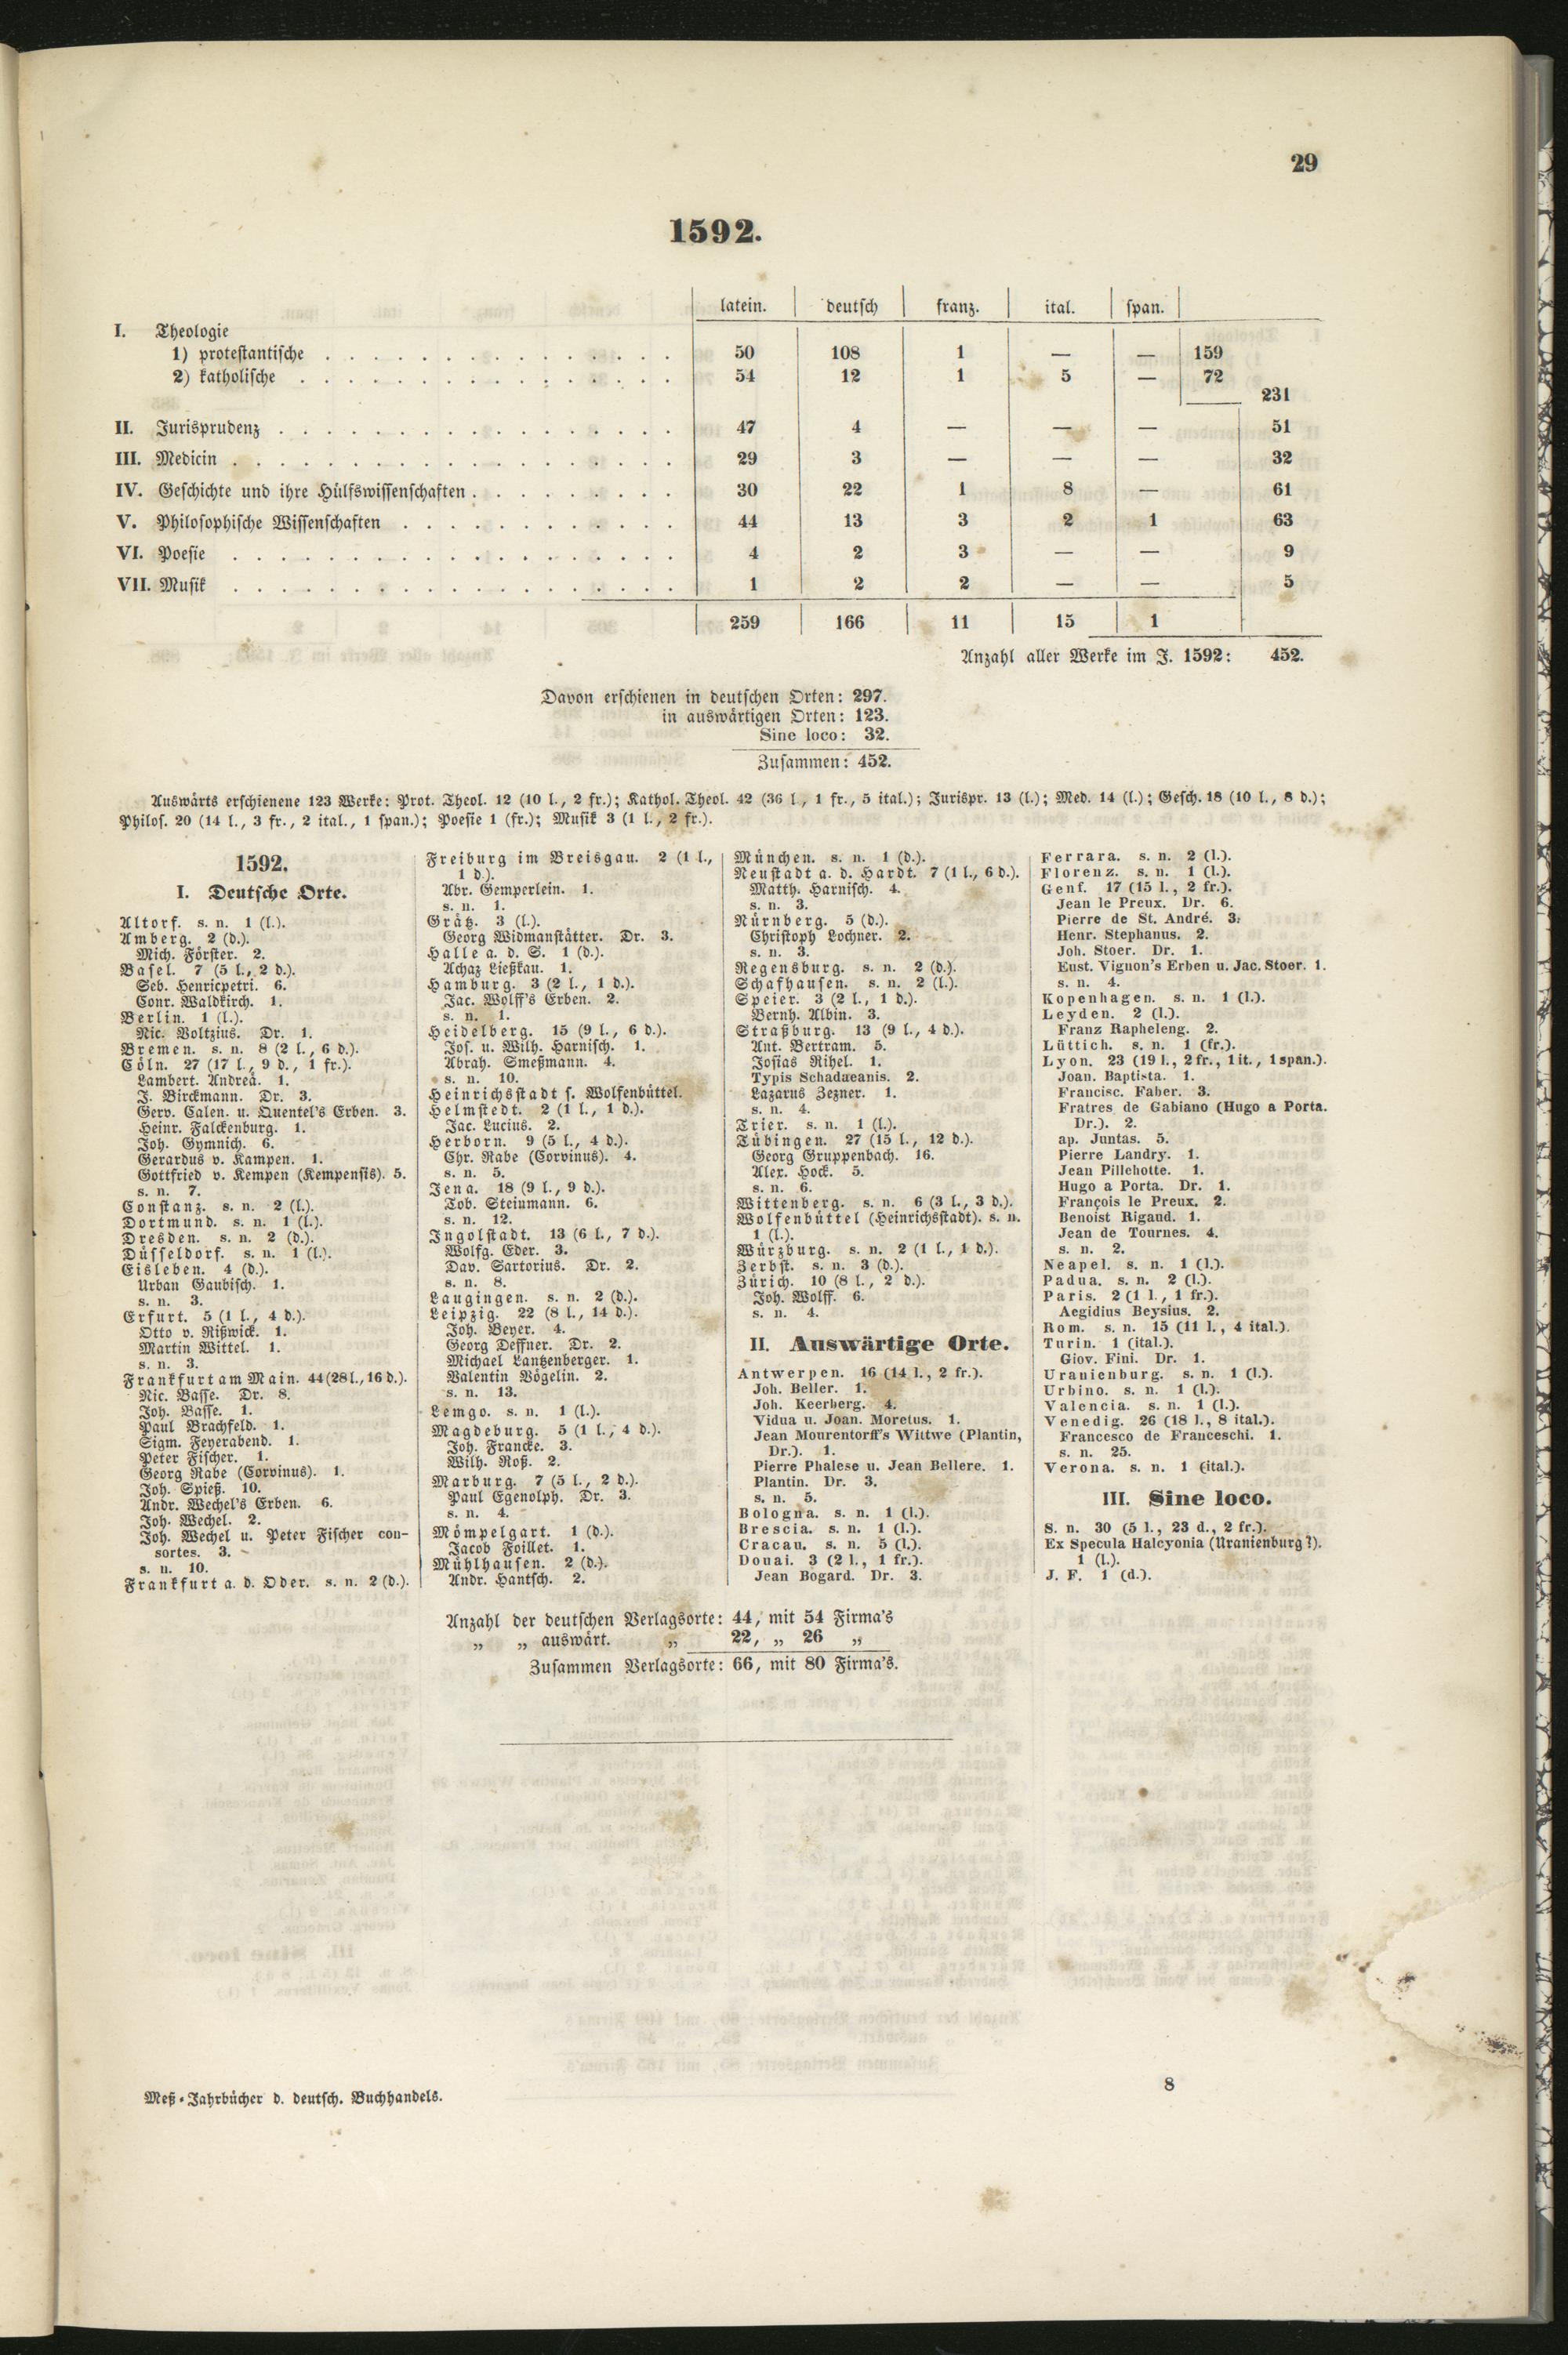 29
1592.
latein. deutſch franz. ital. ſpan.
I. Theologie
1) proteſtantiſche . . . . . . . . . . . . . . . 50 108 1 — — 159
2) katholiſche . . . . . . . . . . . . . . . . 54 12 1 5 — 72
231
II. Jurisprudenz . . . . . . . . . . . . . . . . . 47 4 — — — 51
III. Medicin . . . . . . . . . . . . . . . . . . . 29 3 — — — 32
IV. Geſchichte und ihre Hülfswiſſenſchaften . . . . . . . . . 30 22 1 8 — 61
V. Philoſophiſche Wiſſenſchaften . . . . . . . . . . . . 44 13 3 2 1 63
VI. Poeſie . . . . . . . . . . . . . . . . . . . 4 2 3 — — 9
VII. Muſik . . . . . . . . . . . . . . . . . . . 1 2 2 — — 5
259 166 11 15 1
Anzahl aller Werke im J. 1592: 452.
Davon erſchienen in deutſchen Orten: 297.
in auswärtigen Orten: 123.
Sine loco: 32.
Zuſammen: 452.
Auswärts erſchienene 123 Werke: Prot. Theol. 12 (10 l., 2 fr.); Kathol. Theol. 42 (36 l., 1 fr., 5 ital.); Jurispr. 13 (l.); Med. 14 (l.); Geſch. 18 (10 l., 8 d.);
Philoſ. 20 (14 l., 3 fr., 2 ital., 1 ſpan.); Poeſie 1 (fr.); Muſik 3 (1 l., 2 fr.).
1592.
I. Deutſche Orte.
Altorf. s. n. 1 (l.).
Amberg. 2 (d.).
Mich. Förſter. 2.
Baſel. 7 (5 l., 2 d.).
Seb. Henricpetri. 6.
Conr. Waldkirch. 1.
Berlin. 1 (l.).
Nic. Voltzius. Dr. 1.
Bremen. s. n. 8 (2 l., 6 d.).
Cöln. 27 (17 l., 9 d., 1 fr.).
Lambert. Andreä. 1.
J. Birckmann. Dr. 3.
Gerv. Calen. u. Quentel's Erben. 3.
Heinr. Falckenburg. 1.
Joh. Gymnich. 6.
Gerardus v. Kampen. 1.
Gottfried v. Kempen (Kempenſis). 5.
s. n. 7.
Conſtanz. s. n. 2 (l.).
Dortmund. s. n. 1 (l.).
Dresden. s. n. 2 (d.).
Düſſeldorf. s. n. 1 (l.).
Eisleben. 4 (d.).
Urban Gaubiſch. 1.
s. n. 3.
Erfurt. 5 (1 l., 4 d.).
Otto v. Rißwick. 1.
Martin Wittel. 1.
s. n. 3.
Frankfurt am Main. 44 (28 l., 16 d.).
Nic. Baſſe. Dr. 8.
Joh. Baſſe. 1.
Paul Brachfeld. 1.
Sigm. Feyerabend. 1.
Peter Fiſcher. 1.
Georg Rabe (Corvinus). 1.
Joh. Spieß. 10.
Andr. Wechel's Erben. 6.
Joh. Wechel. 2.
Joh. Wechel u. Peter Fiſcher con-
sortes. 3.
s. n. 10.
Frankfurt a. d. Oder. s. n. 2 (d.).
Freiburg im Breisgau. 2 (1 l.,
1 d.).
Abr. Gemperlein. 1.
s. n. 1.
Grätz. 3 (l.).
Georg Widmanſtätter. Dr. 3.
Halle a. d. S. 1 (d.).
Achaz Ließkau. 1.
Hamburg. 3 (2 l., 1 d.).
Jac. Wolff's Erben. 2.
s. n. 1.
Heidelberg. 15 (9 l., 6 d.).
Joſ. u. Wilh. Harniſch. 1.
Abrah. Smeßmann. 4.
s. n. 10.
Heinrichsſtadt ſ. Wolfenbüttel.
Helmſtedt. 2 (1 l., 1 d.).
Jac. Lucius. 2.
Herborn. 9 (5 l., 4 d.).
Chr. Rabe (Corvinus). 4.
s. n. 5.
Jena. 18 (9 l., 9 d.).
Tob. Steinmann. 6.
s. n. 12.
Ingolſtadt. 13 (6 l., 7 d.).
Wolfg. Eder. 3.
Dav. Sartorius. Dr. 2.
s. n. 8.
Laugingen. s. n. 2 (d.).
Leipzig. 22 (8 l., 14 d.).
Joh. Beyer. 4.
Georg Deffner. Dr. 2.
Michael Lantzenberger. 1.
Valentin Vögelin. 2.
s. n. 13.
Lemgo. s. n. 1 (l.).
Magdeburg. 5 (1 l., 4 d.).
Joh. Francke. 3.
Wilh. Roß. 2.
Marburg. 7 (5 l., 2 d.).
Paul Egenolph. Dr. 3.
s. n. 4.
Mömpelgart. 1 (d.).
Jacob Foillet. 1.
Mühlhauſen. 2 (d.).
Andr. Hantſch. 2.
München. s. n. 1 (d.).
Neuſtadt a. d. Hardt. 7 (1 l., 6 d.).
Matth. Harniſch. 4.
s. n. 3.
Nürnberg. 5 (d.).
Chriſtoph Lochner. 2.
s. n. 3.
Regensburg. s. n. 2 (d.).
Schafhauſen. s. n. 2 (l.).
Speier. 3 (2 l., 1 d.).
Bernh. Albin. 3.
Straßburg. 13 (9 l., 4 d.).
Ant. Bertram. 5.
Joſias Rihel. 1.
Typis Schadaeanis. 2.
Lazarus Zezner. 1.
s. n. 4.
Trier. s. n. 1 (l.).
Tübingen. 27 (15 l., 12 d.).
Georg Gruppenbach. 16.
Alex. Hock. 5.
s. n. 6.
Wittenberg. s. n. 6 (3 l., 3 d.).
Wolfenbüttel (Heinrichsſtadt). s. n.
1 (l.).
Würzburg. s. n. 2 (1 l., 1 d.).
Zerbſt. s. n. 3 (d.).
Zürich. 10 (8 l., 2 d.).
Joh. Wolff. 6.
s. n. 4.
II. Auswärtige Orte.
Antwerpen. 16 (14 l., 2 fr.).
Joh. Beller. 1.
Joh. Keerberg. 4.
Vidua u. Joan. Moretus. 1.
Jean Mourentorff's Wittwe (Plantin,
Dr.). 1.
Pierre Phalese u. Jean Bellere. 1.
Plantin. Dr. 3.
s. n. 5.
Bologna. s. n. 1 (l.).
Brescia. s. n. 1 (l.).
Cracau. s. n. 5 (l.).
Douai. 3 (2 l., 1 fr.).
Jean Bogard. Dr. 3.
Ferrara. s. n. 2 (l.).
Florenz. s. n. 1 (l.).
Genf. 17 (15 l., 2 fr.).
Jean le Preux. Dr. 6.
Pierre de St. André. 3.
Henr. Stephanus. 2.
Joh. Stoer. Dr. 1.
Eust. Vignon's Erben u. Jac. Stoer. 1.
s. n. 4.
Kopenhagen. s. n. 1 (l.).
Leyden. 2 (l.).
Franz Rapheleng. 2.
Lüttich. s. n. 1 (fr.).
Lyon. 23 (19 l., 2 fr., 1 it., 1 span.).
Joan. Baptista. 1.
Francisc. Faber. 3.
Fratres de Gabiano (Hugo a Porta.
Dr.). 2.
ap. Juntas. 5.
Pierre Landry. 1.
Jean Pillehotte. 1.
Hugo a Porta. Dr. 1.
François le Preux. 2.
Benoist Rigaud. 1.
Jean de Tournes. 4.
s. n. 2.
Neapel. s. n. 1 (l.).
Padua. s. n. 2 (l.).
Paris. 2 (1 l., 1 fr.).
Aegidius Beysius. 2.
Rom. s. n. 15 (11 l., 4 ital.).
Turin. 1 (ital.).
Giov. Fini. Dr. 1.
Uranienburg. s. n. 1 (l.).
Urbino. s. n. 1 (l.).
Valencia. s. n. 1 (l.).
Venedig. 26 (18 l., 8 ital.).
Francesco de Franceschi. 1.
s. n. 25.
Verona. s. n. 1 (ital.).
III. Sine loco.
S. n. 30 (5 l., 23 d., 2 fr.).
Ex Specula Halcyonia (Uranienburg?).
1 (l.).
J. F. 1 (d.).
Anzahl der deutſchen Verlagsorte: 44, mit 54 Firma's
„ „ auswärt. „ 22, „ 26 „
Zuſammen Verlagsorte: 66, mit 80 Firma's.
Meß-Jahrbücher d. deutſch. Buchhandels.
8